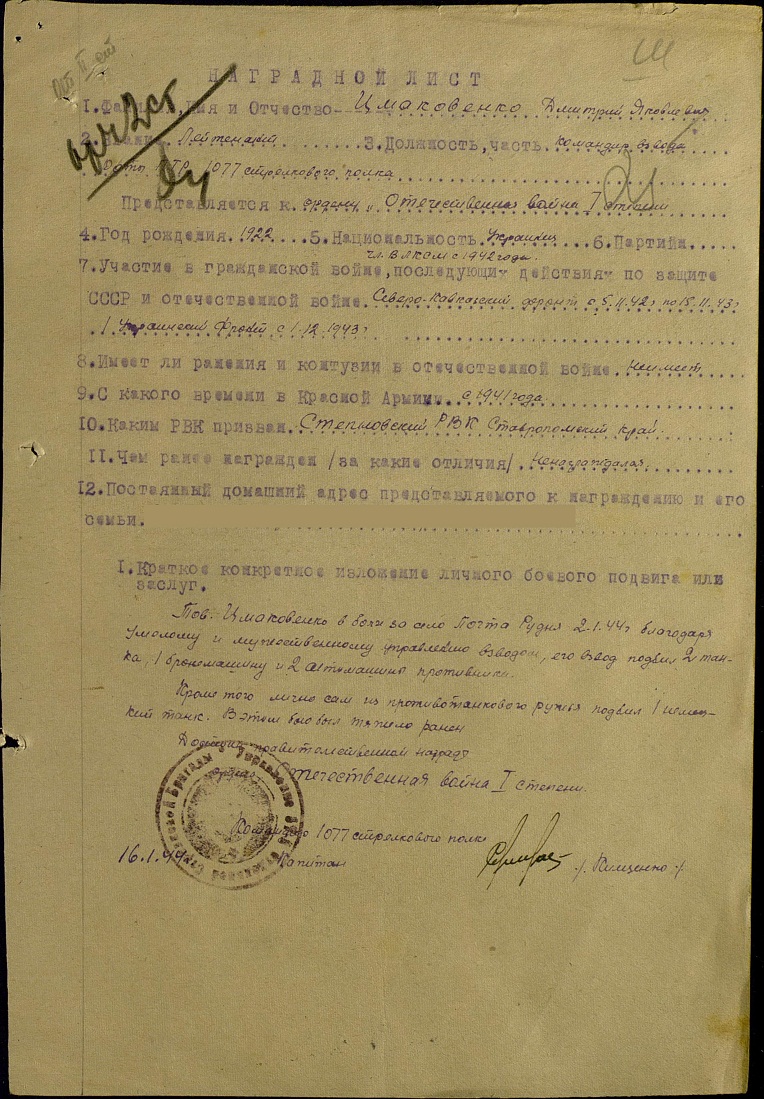 НАГРАДНОЙ ЛИСТ
1. Фамилия, Имя и Отчество Цмаковенко Дмитрий Яковлевич
2. Звание Лейтенант 3. Должность, часть командир взвода
роты ПТР 1077 стрелкового полка
Представляется к ордену „Отечественная война I степени
4. Год рождения 1922 5. Национальность украинец 6. Партийн.
чл. ВЛКСМ с 1942 года.
7. Участие в гражданской войне, последующих действиях по защите
СССР и отечественной войне. Северо-Кавказский фронт с 5.11.42г по 15.11.43г
1 Украинский Фронт с 1.12.1943г
8. Имеет ли ранения и контузии в отечественной войне. Неимеет
9. С какого времени в Красной Армии с 1941 года
10. Каким РВК призван. Степновский РВК Ставропольский край.
11. Чем ранее награжден /за какие отличия/ Ненаграждался
12. Постоянный домашний адрес представляемого к награждению и его
семьи.
1. Краткое конкретное изложение личного боевого подвига или
заслуг.
Тов. Цмаковенко в боях за село Почта Рудня 2.1.44г благодаря
умелому и мужественному управлению взводом, его взвод подбил 2 тан-
ка, 1 бронемашину и 2 автомашины противника.
Кроме того лично сам из противотанкового ружья подбил 1 немец-
кий танк. В этом бою был тяжело ранен
Достоин правительственной награды
ордена Отечественная война I степени.
Командир 1077 стрелкового полка
16.1.44г Капитан /. Клищенко ./